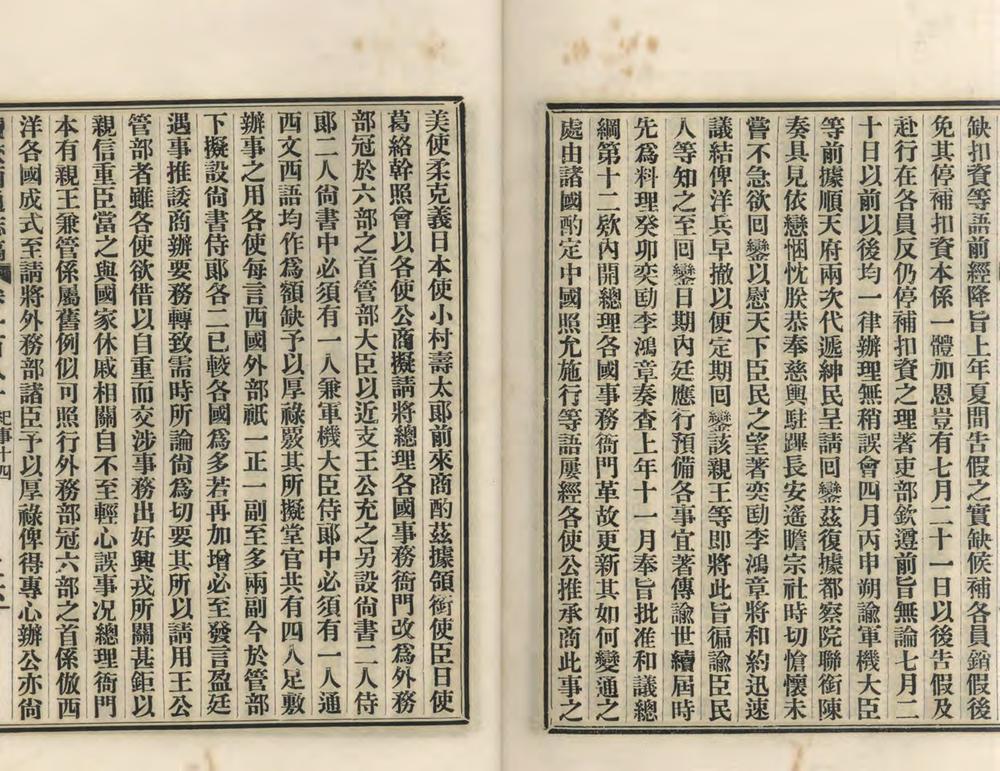 缺扣資等語前經降旨上年夏間告假之實缺候補各員銷假後
免其停補扣資本係一體加恩豈有七月二十一日以後告假及
赴行在各員反仍停補扣資之理著吏部欽遵前旨無論七月二
十日以前以後均一律辦理無稍誤會四月丙申朔諭軍機大臣
等前據順天府兩次代遞紳民呈請回鑾茲復據都察院聯銜陳
奏具見依戀悃忱朕恭奉慈輿駐蹕長安遙瞻宗社時切愴懷未
嘗不急欲回鑾以慰天下臣民之望著奕劻李鴻章將和約迅速
議結俾洋兵早撤以便定期回鑾該親王等即將此旨徧諭臣民
人等知之至回鑾日期內廷應行預備各事宜著傳諭世續屆時
先爲料理癸卯奕劻李鴻章奏查上年十一月奉旨批准和議總
綱第十二欵內開總理各國事務衙門革故更新其如何變通之
處由諸國酌定中國照允施行等語屢經各使公推承商此事之
美使柔克義日本使小村壽太郎前來商酌茲據領銜使臣日使
葛絡幹照會以各使公商擬請將總理各國事務衙門改爲外務
部冠於六部之首管部大臣以近支王公充之另設尙書二人侍
郎二人尙書中必須有一人兼軍機大臣侍郎中必須有一人通
西文西語均作爲額缺予以厚祿敩其所擬堂官共有四人足敷
辦事之用各使每言西國外部祇一正一副至多兩副今於管部
下擬設尙書侍郎各二已較各國爲多若再加增必至發言盈廷
遇事推諉商辦要務轉致需時所論尙爲切要其所以請用王公
管部者雖各使欲借以自重而交涉事務出好興戎所關甚鉅以
親信重臣當之與國家休戚相關自不至輕心誤事况總理衙門
本有親王兼管係屬舊例似可照行外務部冠六部之首係倣西
洋各國成式至請將外務部諸臣予以厚祿俾得專心辦公亦尙
紀事十四